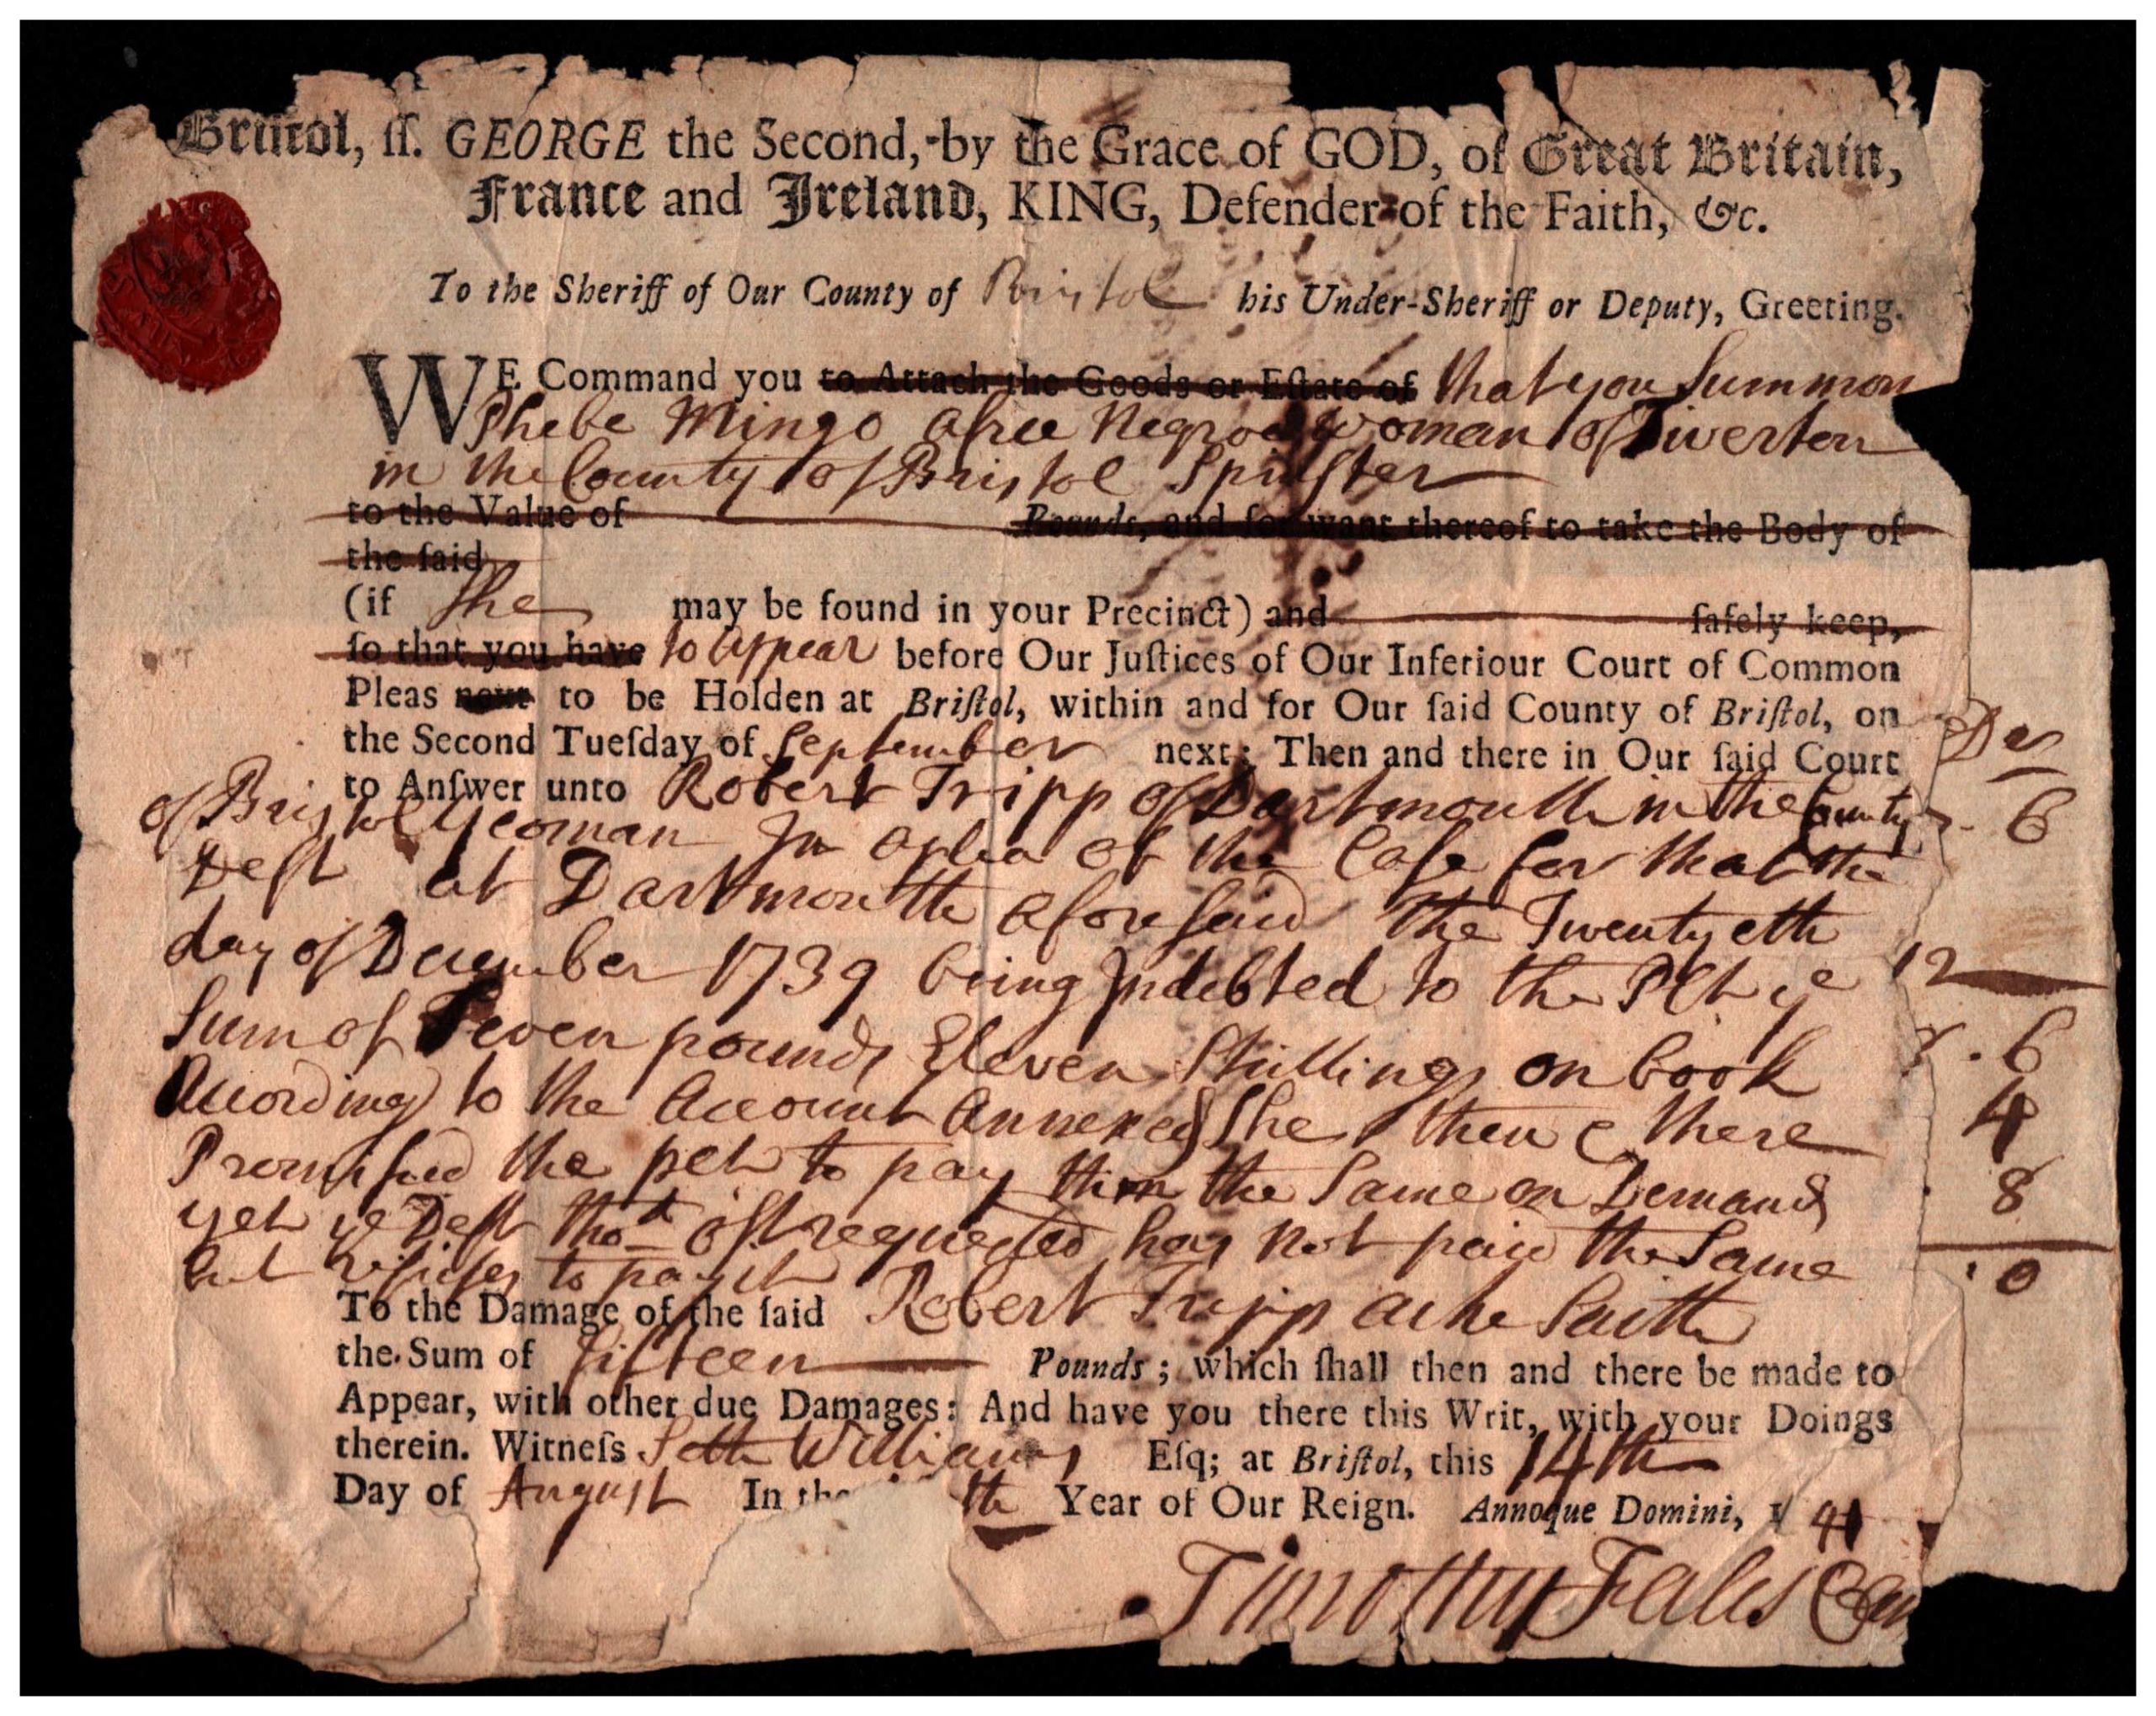 Bristol, ſſ. GEORGE the Second, by the Grace of GOD, of Great Britain,
France and Ireland, KING, Defender of the Faith, &c.
To the Sheriff of Our County of Bristol his Under-Sheriff or Deputy, Greeting.
WE Command you to Attach the Goods or Eſtate of that you Summon
Phebe Mingo a free Negroe Woman of Tiverton
in the County of Bristol Spinster
to the Value of Pounds, and for want thereof to take the Body of
the ſaid
(if She may be found in your Precinct) and ſafely keep,
ſo that you have to appear before Our Juſtices of Our Inferiour Court of Common
Pleas next to be Holden at Briſtol, within and for Our ſaid County of Briſtol, on
the Second Tueſday of September next; Then and there in Our ſaid Court
to Anſwer unto Robert Tripp of Dartmouth in the County
of Bristol Yeoman In a plea of the Case for that the
Deft at Dartmouth aforesaid the Twentyeth
day of December 1739 being Indebted to the Plt ye
Sum of Seven pounds Eleven Shillings on book
According to the Account Annexed She then & there
Promised the plt to pay him the Same on Demand
yet ye Deft tho' oft requested has not paid the Same
but refuses to pay it
To the Damage of the ſaid Robert Tripp as he Saith
the Sum of fifteen Pounds; which ſhall then and there be made to
Appear, with other due Damages: And have you there this Writ, with your Doings
therein. Witneſs Seth Williams Eſq; at Briſtol, this 14th
Day of August In the th Year of Our Reign. Annoque Domini, 1 41
Timothy Fales
6
12
6
4
8
0